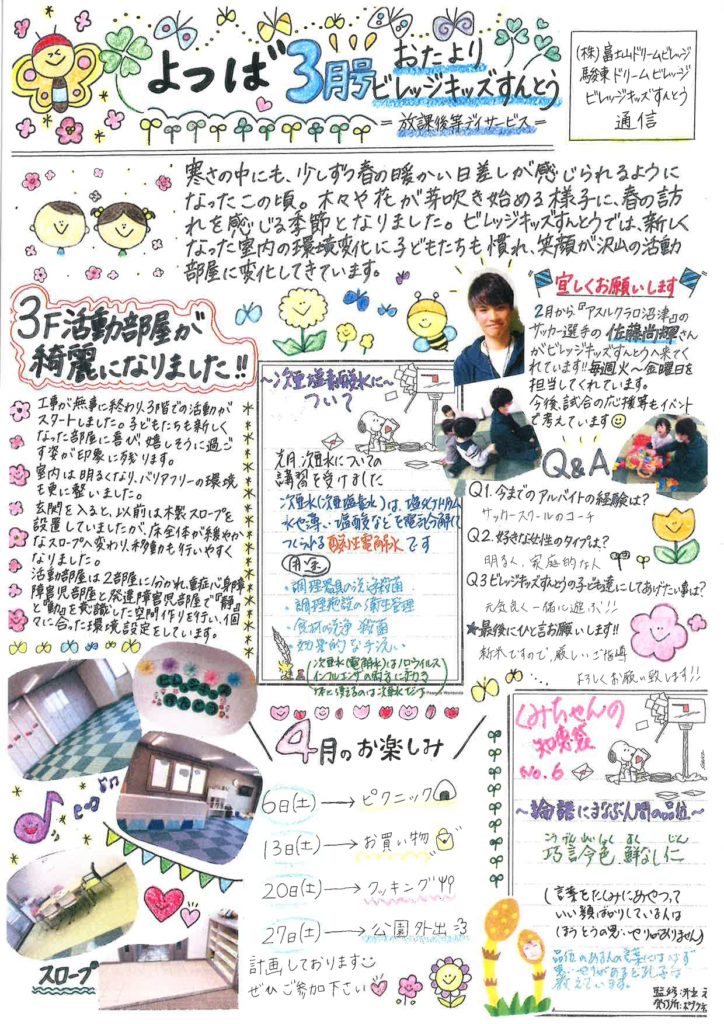 よつば 3月号
おたより
ビレッジキッズすんとう
=放課後等デイサービス=
(株)富士山ドリームビレッジ
駿東ドリームビレッジ
ビレッジキッズすんとう
通信
寒さの中にも、少しずつ春の暖かい日差しが感じられるように
なったこの頃。木々や花が芽吹き始める様子に、春の訪
れを感じる季節となりました。ビレッジキッズすんとうでは、新しく
なった室内の環境変化に子どもたちも慣れ、笑顔が沢山の活動
部屋に変化してきています。
3F活動部屋が
綺麗になりました!!
工事が無事に終わり、3階での活動が
スタートしました。子どもたちも新しく
なった部屋に喜び、嬉しそうに過ごす
姿が印象に残ります。
室内は明るくなり、バリアフリーの環境
も更に整いました。
玄関を入ると、以前は木製スロープを
設置していましたが、床全体が緩やか
なスロープへ変わり、移動も行いやすく
なりました。
活動部屋は2部屋に分かれ、重症心身障
障害児部屋と発達障害児部屋で『静』
と『動』を意識した空間作りを行い、個
々に合った環境設定をしています。
ビレッジキッズ
すんとう
スロープ
~次亜塩素酸水に~
ついて
先月、次亜水についての
講習を受けました
次亜水(次亜塩素水)は、塩化ナトリウム
水や薄い塩酸などを電気分解して
つくられる酸性電解水です
用途
・調理器具の洗浄殺菌
・調理施設の衛生管理
・食材の洗浄・殺菌
・効果的な手洗い
次亜水(電解水)はノロウイルス
インフルエンザの両方に効き
体に使えるのは次亜水だけ
Peanuts Worldwide
宜しくお願いします
2月から『アスルクラロ沼津』の
サッカー選手の佐藤尚輝さん
がビレッジキッズすんとうへ来てく
れています!!毎週火~金曜日を
担当してくれています。
今後、試合の応援等もイベント
で考えています
Q&A
Q1.今までのアルバイトの経験は?
サッカースクールのコーチ
Q2.好きな女性のタイプは?
明るく、家庭的な人
Q3ビレッジキッズすんとうの子ども達にしてあげたい事は?
元気良く一緒に遊ぶ!!
★最後にひと言お願いします!!
新米ですので、厳しいご指導
よろしくお願い致します!!
4月のお楽しみ
6日(土)→ピクニック
13日(土)→お買い物
20日(土)→クッキング
27日(土)→公園外出
計画しております
ぜひご参加下さい♡
くみちゃんの
知恵袋
NO.6
~論語にまなぶ人間の品位~
巧言令色、鮮なし仁
(言葉をたくみにあやつって
いい顔ばかりしている人は
ほうとうの思いやりがありません)
品位のある人の言葉にはかならず
思いやりがあると孔子は
教えています。